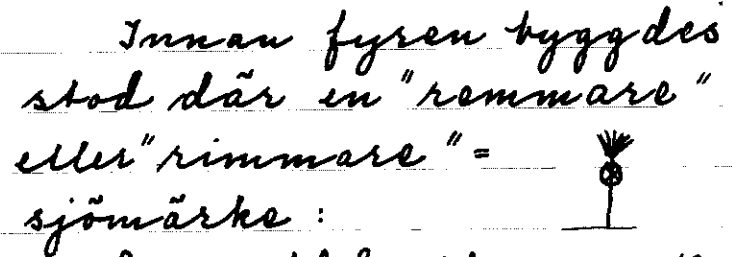 Innan fyren byggdes
stod där en "remmare"
eller "rimmare" =
sjömärke :